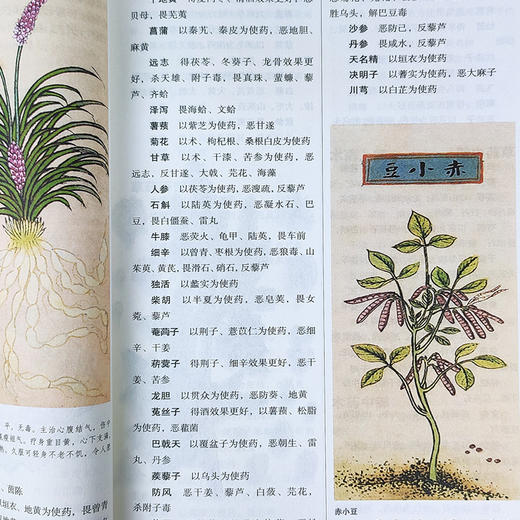 贝母，畏芜荑
菖蒲 以秦艽、秦皮为使药，恶地胆、
麻黄
远志 得茯苓、冬葵子、龙骨效果更好，
杀天雄、附子毒，畏真珠、蜚蠊、藜
芦、齐蛤
泽泻 畏海蛤、文蛤
薯蓣 以紫芝为使药，恶甘遂
菊花 以术、枸杞根、桑根白皮为使药
甘草 以术、干漆、苦参为使药，恶
远志，反甘遂、大戟、芫花、海藻
人参 以茯苓为使药，恶溲疏，反藜芦
石斛 以陆英为使药，恶凝水石、巴
豆，畏白僵蚕、雷丸
牛膝 恶荧火、龟甲、陆英，畏车前
细辛 以曾青、枣根为使药，恶狼毒、山
茱萸、黄芪，畏滑石、硝石，反藜芦
独活 以蠡实为使药
柴胡 以半夏为使药，恶皂荚，畏女
菀、藜芦
菴䕡子 以荆子、薏苡仁为使药，恶细
辛、干姜
菥蓂子 得荆子、细辛效果更好，恶干
姜、苦参
龙胆 以贯众为使药，恶防葵、地黄
菟丝子 得酒效果更好，以薯蓣、松脂
为使药，恶雚菌
巴戟天 以覆盆子为使药，恶朝生、雷
丸、丹参
蒺藜子 以乌头为使药
防风 恶干姜、藜芦、白蔹、芫花，
杀附子毒
胜乌头，解巴豆毒
沙参 恶防己，反藜芦
丹参 畏咸水，反藜芦
天名精 以垣衣为使药
决明子 以蓍实为使药，恶大麻子
川芎 以白芷为使药
赤小豆
赤小豆
平，无毒。主治心腹结气，伤中
羸瘦短气。疗身重目黄，心下支满，
久服可轻身不老不饥，令人愿
、茵陈
垣衣、地黄为使药，畏曾青